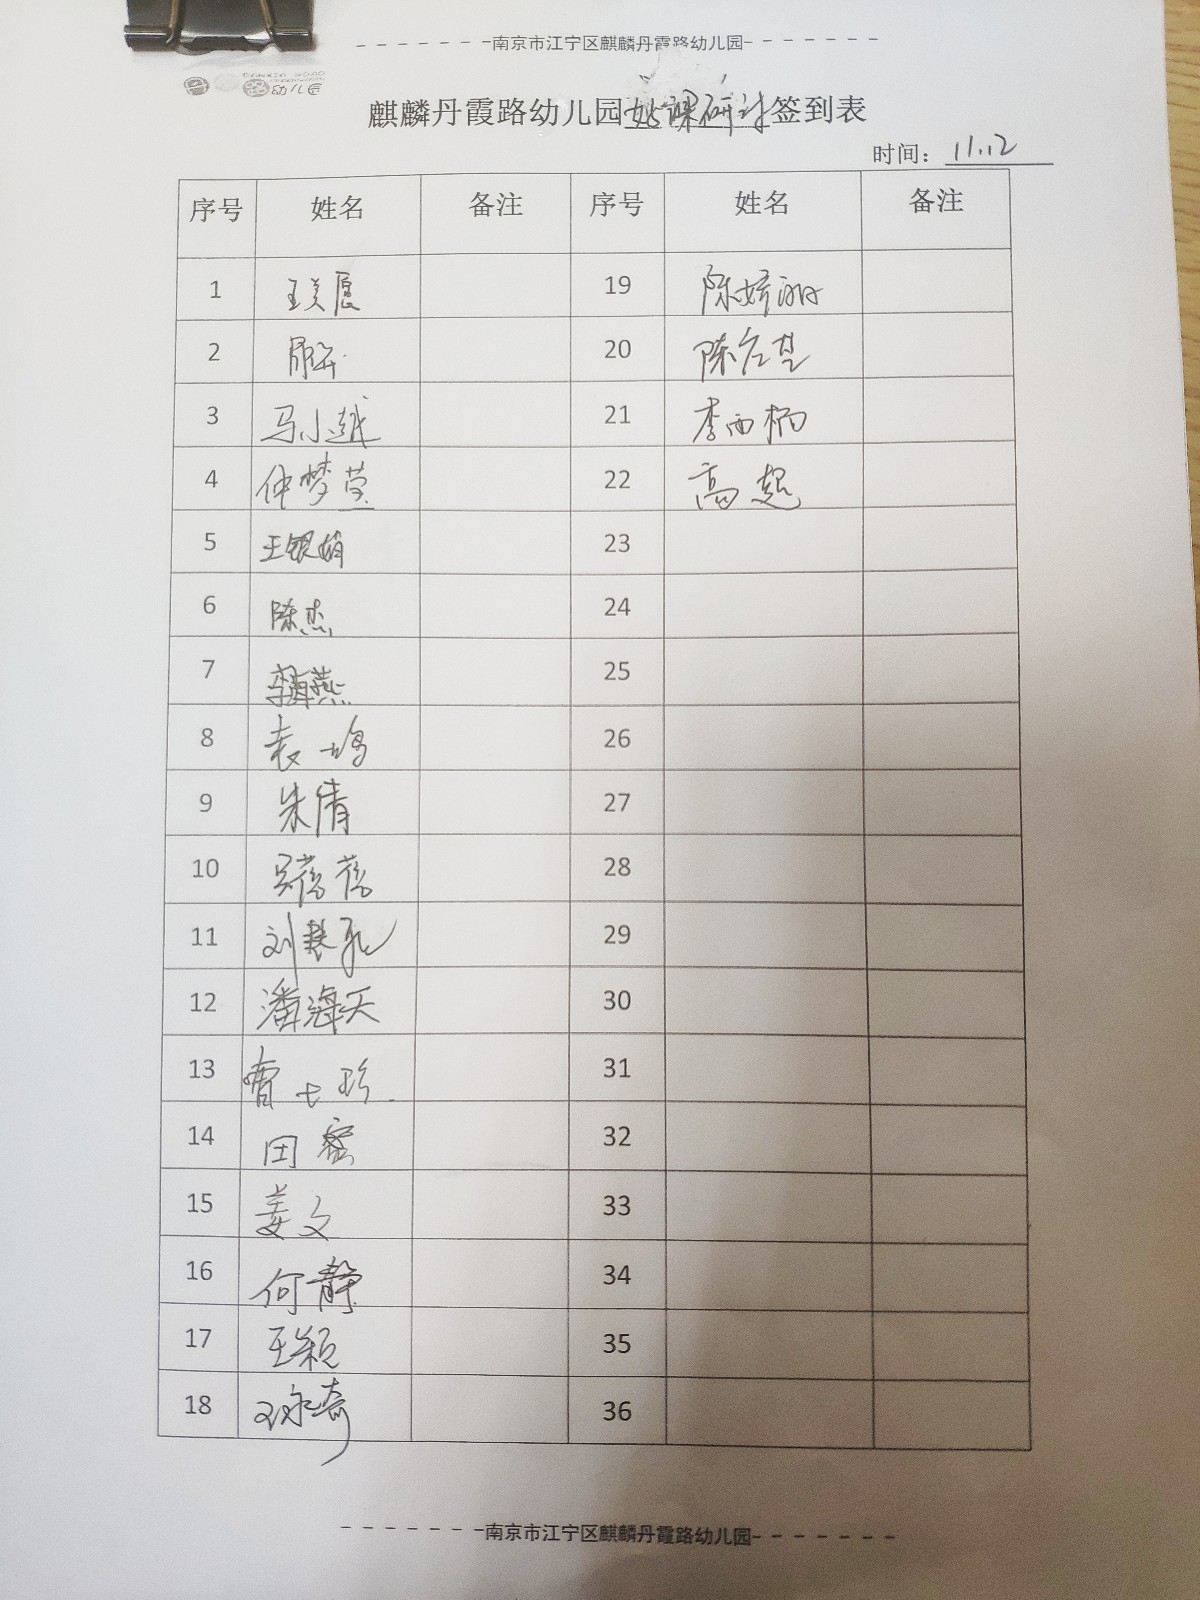 南京市江宁区麒麟丹霞路幼儿园
路幼儿园
麒麟丹霞路幼儿园 课研讨签到表
时间：11.12
序号 姓名 备注 序号 姓名 备注
1 王美愿 19 陈娇
2 20 陈
3 马小越 21 李雨桐
4 仲梦莹 22 高超
5 王银娟 23
6 陈杰 24
7 李海燕 25
8 袁 26
9 朱倩 27
10 吴蓓蓓 28
11 刘 29
12 潘海天 30
13 曹 珍 31
14 田密 32
15 姜文 33
16 何静 34
17 王颖 35
18 邓永奇 36
南京市江宁区麒麟丹霞路幼儿园